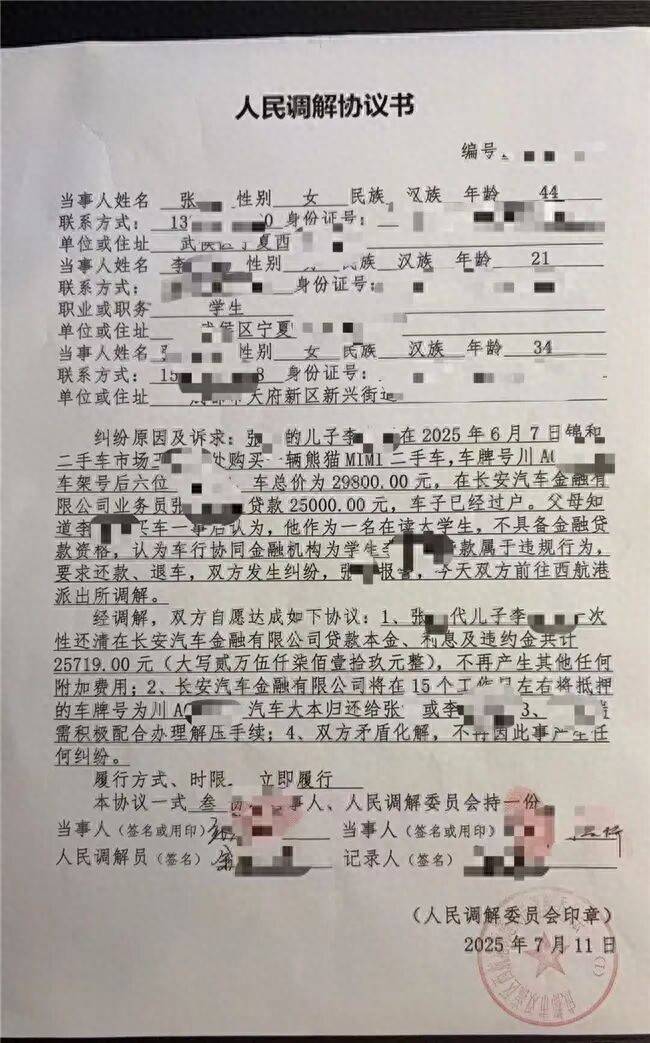 人民调解协议书
编号
当事人姓名 张 性别 女 民族 汉族 年龄 44
联系方式：13 0 身份证号：
单位或住址 武侯区宁夏西
当事人姓名 李 性别 民族 汉族 年龄 21
联系方式： 身份证号：
职业或职务 学生
单位或住址 武侯区宁夏
当事人姓名 张 性别 女 民族 汉族 年龄 34
联系方式：15 8 身份证号：
单位或住址 天府新区新兴街道
纠纷原因及诉求：张 的儿子李 在2025年6月7日锦和
二手车市场 处购买一辆熊猫MIMI二手车，车牌号川A
车架号后六位 车总价为29800.00元，在长安汽车金融有
限公司业务员张 贷款25000.00元，车子已经过户。父母知
道李 买车一事后认为，他作为一名在读大学生，不具备金融贷
款资格，认为车行协同金融机构为学生 贷款属于违规行为，
要求还款、退车，双方发生纠纷，张 报警，今天双方前往西航港
派出所调解。
经调解，双方自愿达成如下协议：1、张 代儿子李 一次
性还清在长安汽车金融有限公司贷款本金、利息及违约金共计
25719.00元（大写贰万伍仟柒佰壹拾玖元整），不再产生其他任何
附加费用；2、长安汽车金融有限公司将在15个工作日左右将抵押
的车牌号为川A 汽车大本归还给张 或李 3、
需积极配合办理解压手续；4、双方矛盾化解，不再因此事产生任
何纠纷。
履行方式、时限 立即履行
本协议一式 叁 事人、人民调解委员会持一份
当事人（签名或用印） 当事人（签名或用印）
人民调解员（签名） 记录人（签名）
（人民调解委员会印章）
2025年7月11日